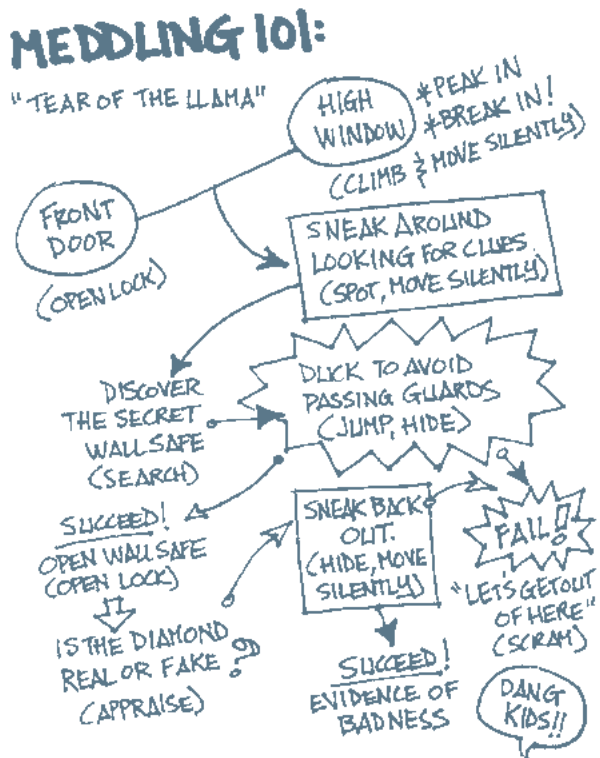 MEDDLING 101:
"TEAR OF THE LLAMA"
HIGH
WINDOW
*PEAK IN
*BREAK IN!
(CLIMB & MOVE SILENTLY)
FRONT
DOOR
(OPEN LOCK)
SNEAK AROUND
LOOKING FOR CLUES.
(SPOT, MOVE SILENTLY)
DUCK TO AVOID
PASSING GUARDS
(JUMP, HIDE)
DISCOVER
THE SECRET
WALL SAFE
(SEARCH)
SUCCEED!
OPEN WALL SAFE
(OPEN LOCK)
IS THE DIAMOND
REAL OR FAKE?
(APPRAISE)
SNEAK BACK
OUT.
(HIDE, MOVE
SILENTLY)
FAIL!
"LET'S GET OUT
OF HERE"
(SCRAM)
SUCCEED!
EVIDENCE OF
BADNESS
DANG
KIDS!!